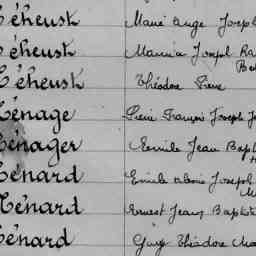 Léheust Marie Ange Joseph
Léheust Maurice Joseph
Léheust Théodore Pierre
Ménage Pierre François Joseph
Ménager Emile Jean
Ménard Emile Joseph
Ménard Ernest Jean Baptiste
Ménard Guy Théodore